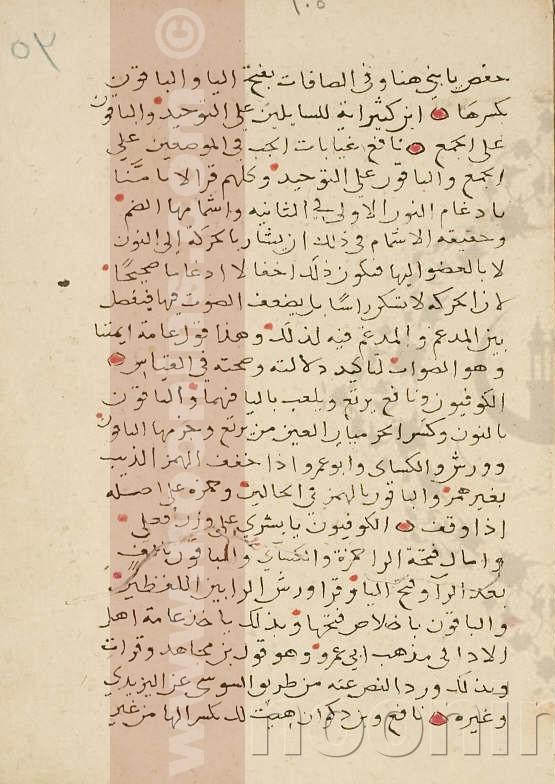 ١٠٥
٥٢
حفص يا بني هنا وفى الصافات بفتح اليا والباقون
بكسرها ابن كثير اية للسايلين على التوحيد والباقون
على الجمع نافع غيابات الجب فى الموضعين على
الجمع والباقون على التوحيد وكلهم قرا لا تامننا
بادغام النون الاولى فى الثانيه واشمامها الضم
وحقيقه الاشمام فى ذلك ان يشار بالحركة إلى النون
لا بالعضو اليها فيكون ذلك اخفا لا ادغاما صحيحًا
لان الحركه لا تسكن راسًا بل يضعف الصوت بها فيفصل
بين المدغم والمدغم فيه لذلك وهذا قول عامة ايمتنا
وهو الصواب لتاكيد دلالته وصحته في القياس
الكوفيون ونافع يرتع ويلعب باليا فيهما والباقون
بالنون وكسر الحرميان العين من يرتع وجزمها الباقون
وورش والكساى وابو عمرو اذا خفف الهمز الذيب
بغير همز والباقون بالهمز فى الحالين وحمزه على اصله
اذا وقف الكوفيون يا بشرى على وزن فعلى
وامال فتحة الرا حمزة والكساي والباقون بالف
بعد الرا وفتح اليا وقرا ورش الرا بين اللفظين
والباقون باخلاص فتحها وبذلك ياخذ عامة اهل
الادا فى مذهب ابى عمرو وهو قول بن مجاهد وقرات
وبذلك ورد النص عنه من طريق السوسى عن اليزيدي
وغيره نافع وبن ذكوان هيت لك بكسر الها من غير
www.
©
noonin